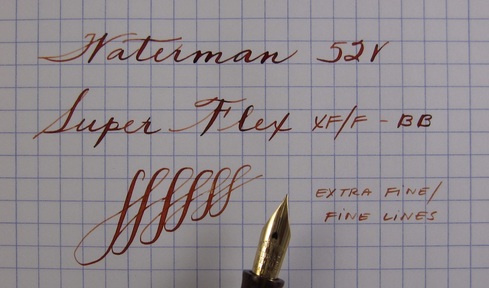 Waterman 52V
Super Flex XF/F - BB
EXTRA FINE/
FINE LINES